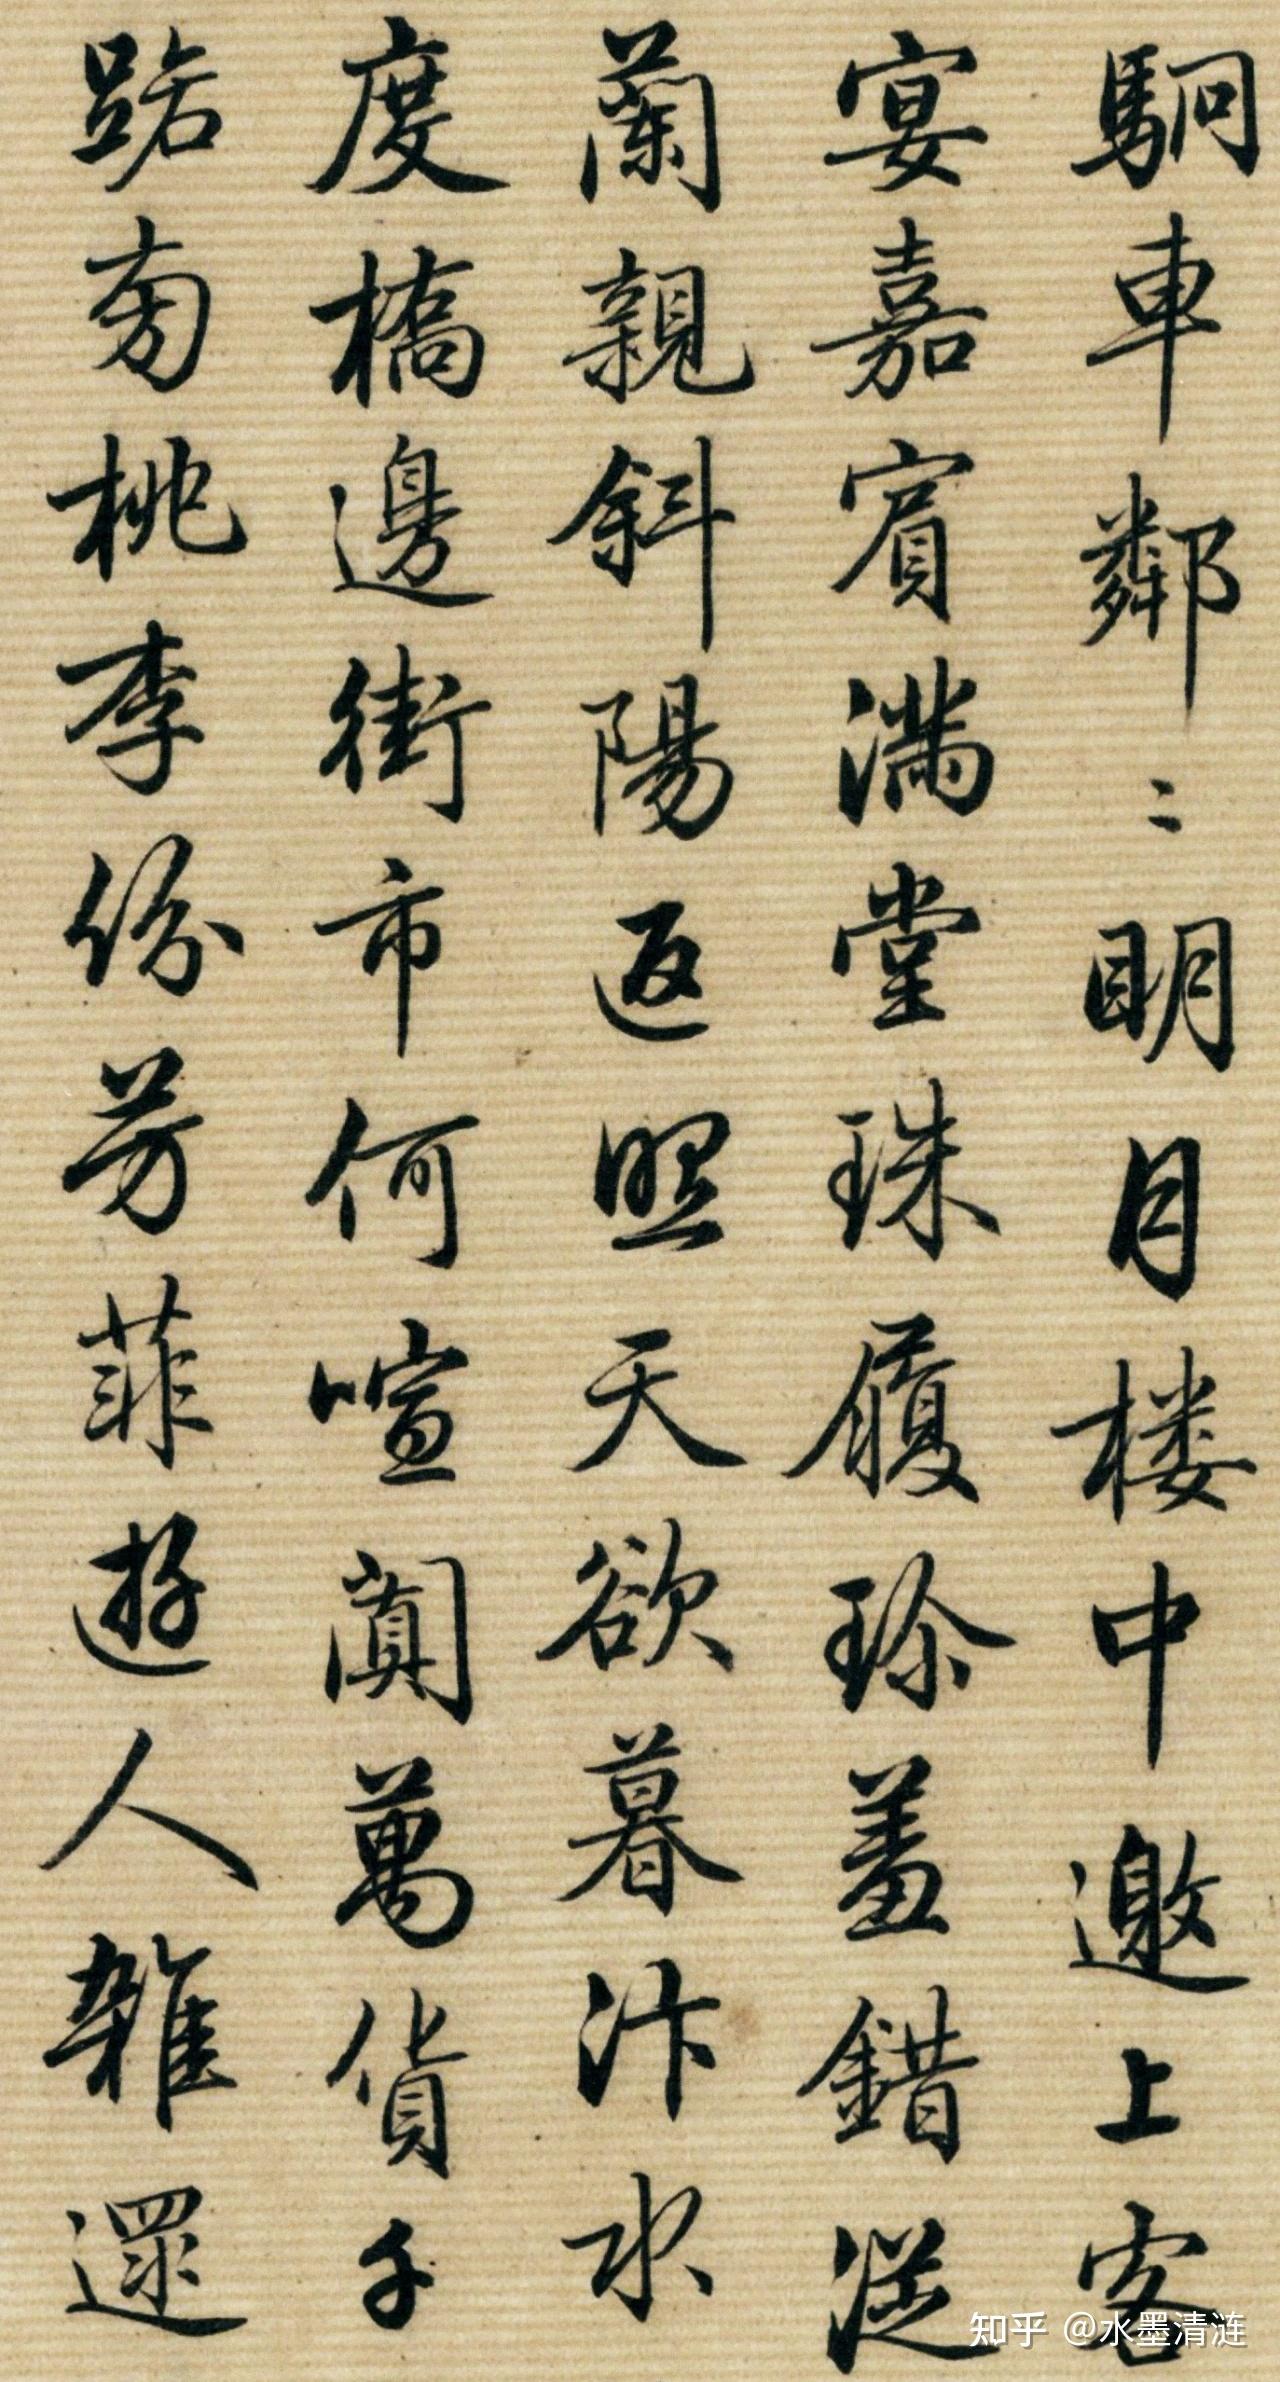 駉車鄰〻明月楼中邀上客
宴嘉賓滿堂珠履珍羞錯
蘭親斜陽返照天欲暮汴水
度橋邊街市何喧闐萬貨千
旁桃李份芳菲遊人雜遝
知乎 @水墨清涟